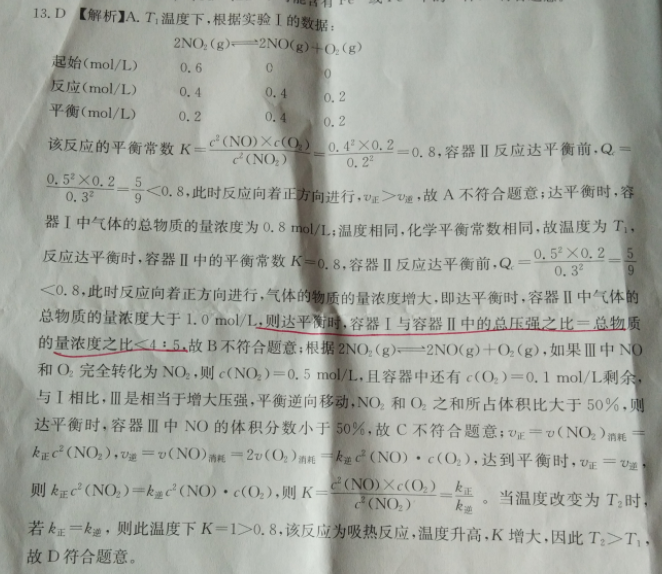 能含有Fe
13. D 【解析】A. T₁温度下,根据实验Ⅰ的数据:
2NO₂(g)⇌2NO(g)+O₂(g)
起始(mol/L) 0.6 0 0
反应(mol/L) 0.4 0.4 0.2
平衡(mol/L) 0.2 0.4 0.2
该反应的平衡常数 K=c²(NO)×c(O₂)/c²(NO₂)=0.4²×0.2/0.2²=0.8,容器Ⅱ反应达平衡前,Q꜀=
0.5²×0.2/0.3²=5/9<0.8,此时反应向着正方向进行,v正>v逆,故 A 不符合题意;达平衡时,容
器Ⅰ中气体的总物质的量浓度为 0.8 mol/L;温度相同,化学平衡常数相同,故温度为 T₁,
反应达平衡时,容器Ⅱ中的平衡常数 K=0.8,容器Ⅱ反应达平衡前,Q꜀=0.5²×0.2/0.3²=5/9
<0.8,此时反应向着正方向进行,气体的物质的量浓度增大,即达平衡时,容器Ⅱ中气体的
总物质的量浓度大于 1.0 mol/L,则达平衡时,容器Ⅰ与容器Ⅱ中的总压强之比=总物质
的量浓度之比<4:5,故 B 不符合题意;根据 2NO₂(g)⇌2NO(g)+O₂(g),如果Ⅲ中 NO
和 O₂ 完全转化为 NO₂,则 c(NO₂)=0.5 mol/L,且容器中还有 c(O₂)=0.1 mol/L剩余,
与Ⅰ相比,Ⅲ是相当于增大压强,平衡逆向移动,NO₂ 和 O₂ 之和所占体积比大于 50%,则
达平衡时,容器Ⅲ中 NO 的体积分数小于 50%,故 C 不符合题意;v正=v(NO₂)消耗=
k正c²(NO₂),v逆=v(NO)消耗=2v(O₂)消耗=k逆c²(NO)·c(O₂),达到平衡时,v正=v逆,
则 k正c²(NO₂)=k逆c²(NO)·c(O₂),则 K=c²(NO)×c(O₂)/c²(NO₂)=k正/k逆。当温度改变为 T₂时,
若 k正=k逆,则此温度下 K=1>0.8,该反应为吸热反应,温度升高,K 增大,因此 T₂>T₁,
故 D 符合题意。